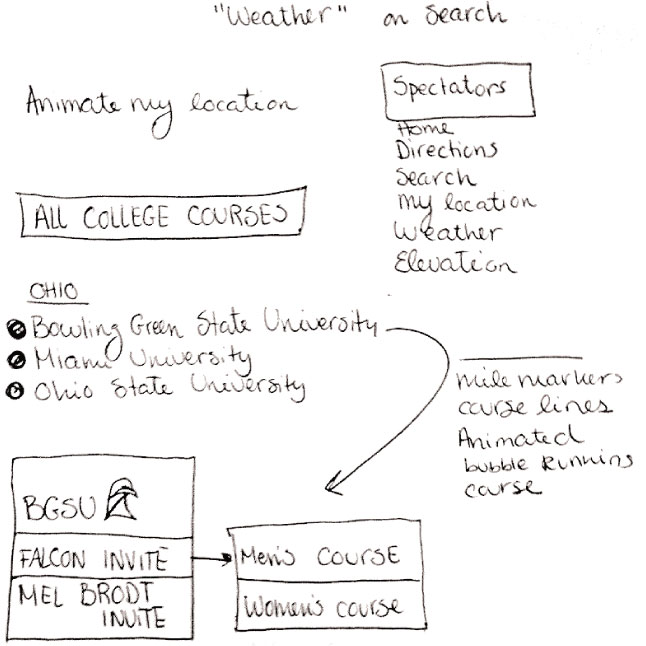 "Weather" on Search
Animate my location
Spectators
Home
Directions
Search
My location
Weather
Elevation
ALL COLLEGE COURSES
OHIO
Bowling Green State University
Miami University
Ohio State University
mile markers
course lines
Animated
bubble Running
course
BGSU
FALCON INVITE
MEL BRODT
INVITE
Men's COURSE
Women's course